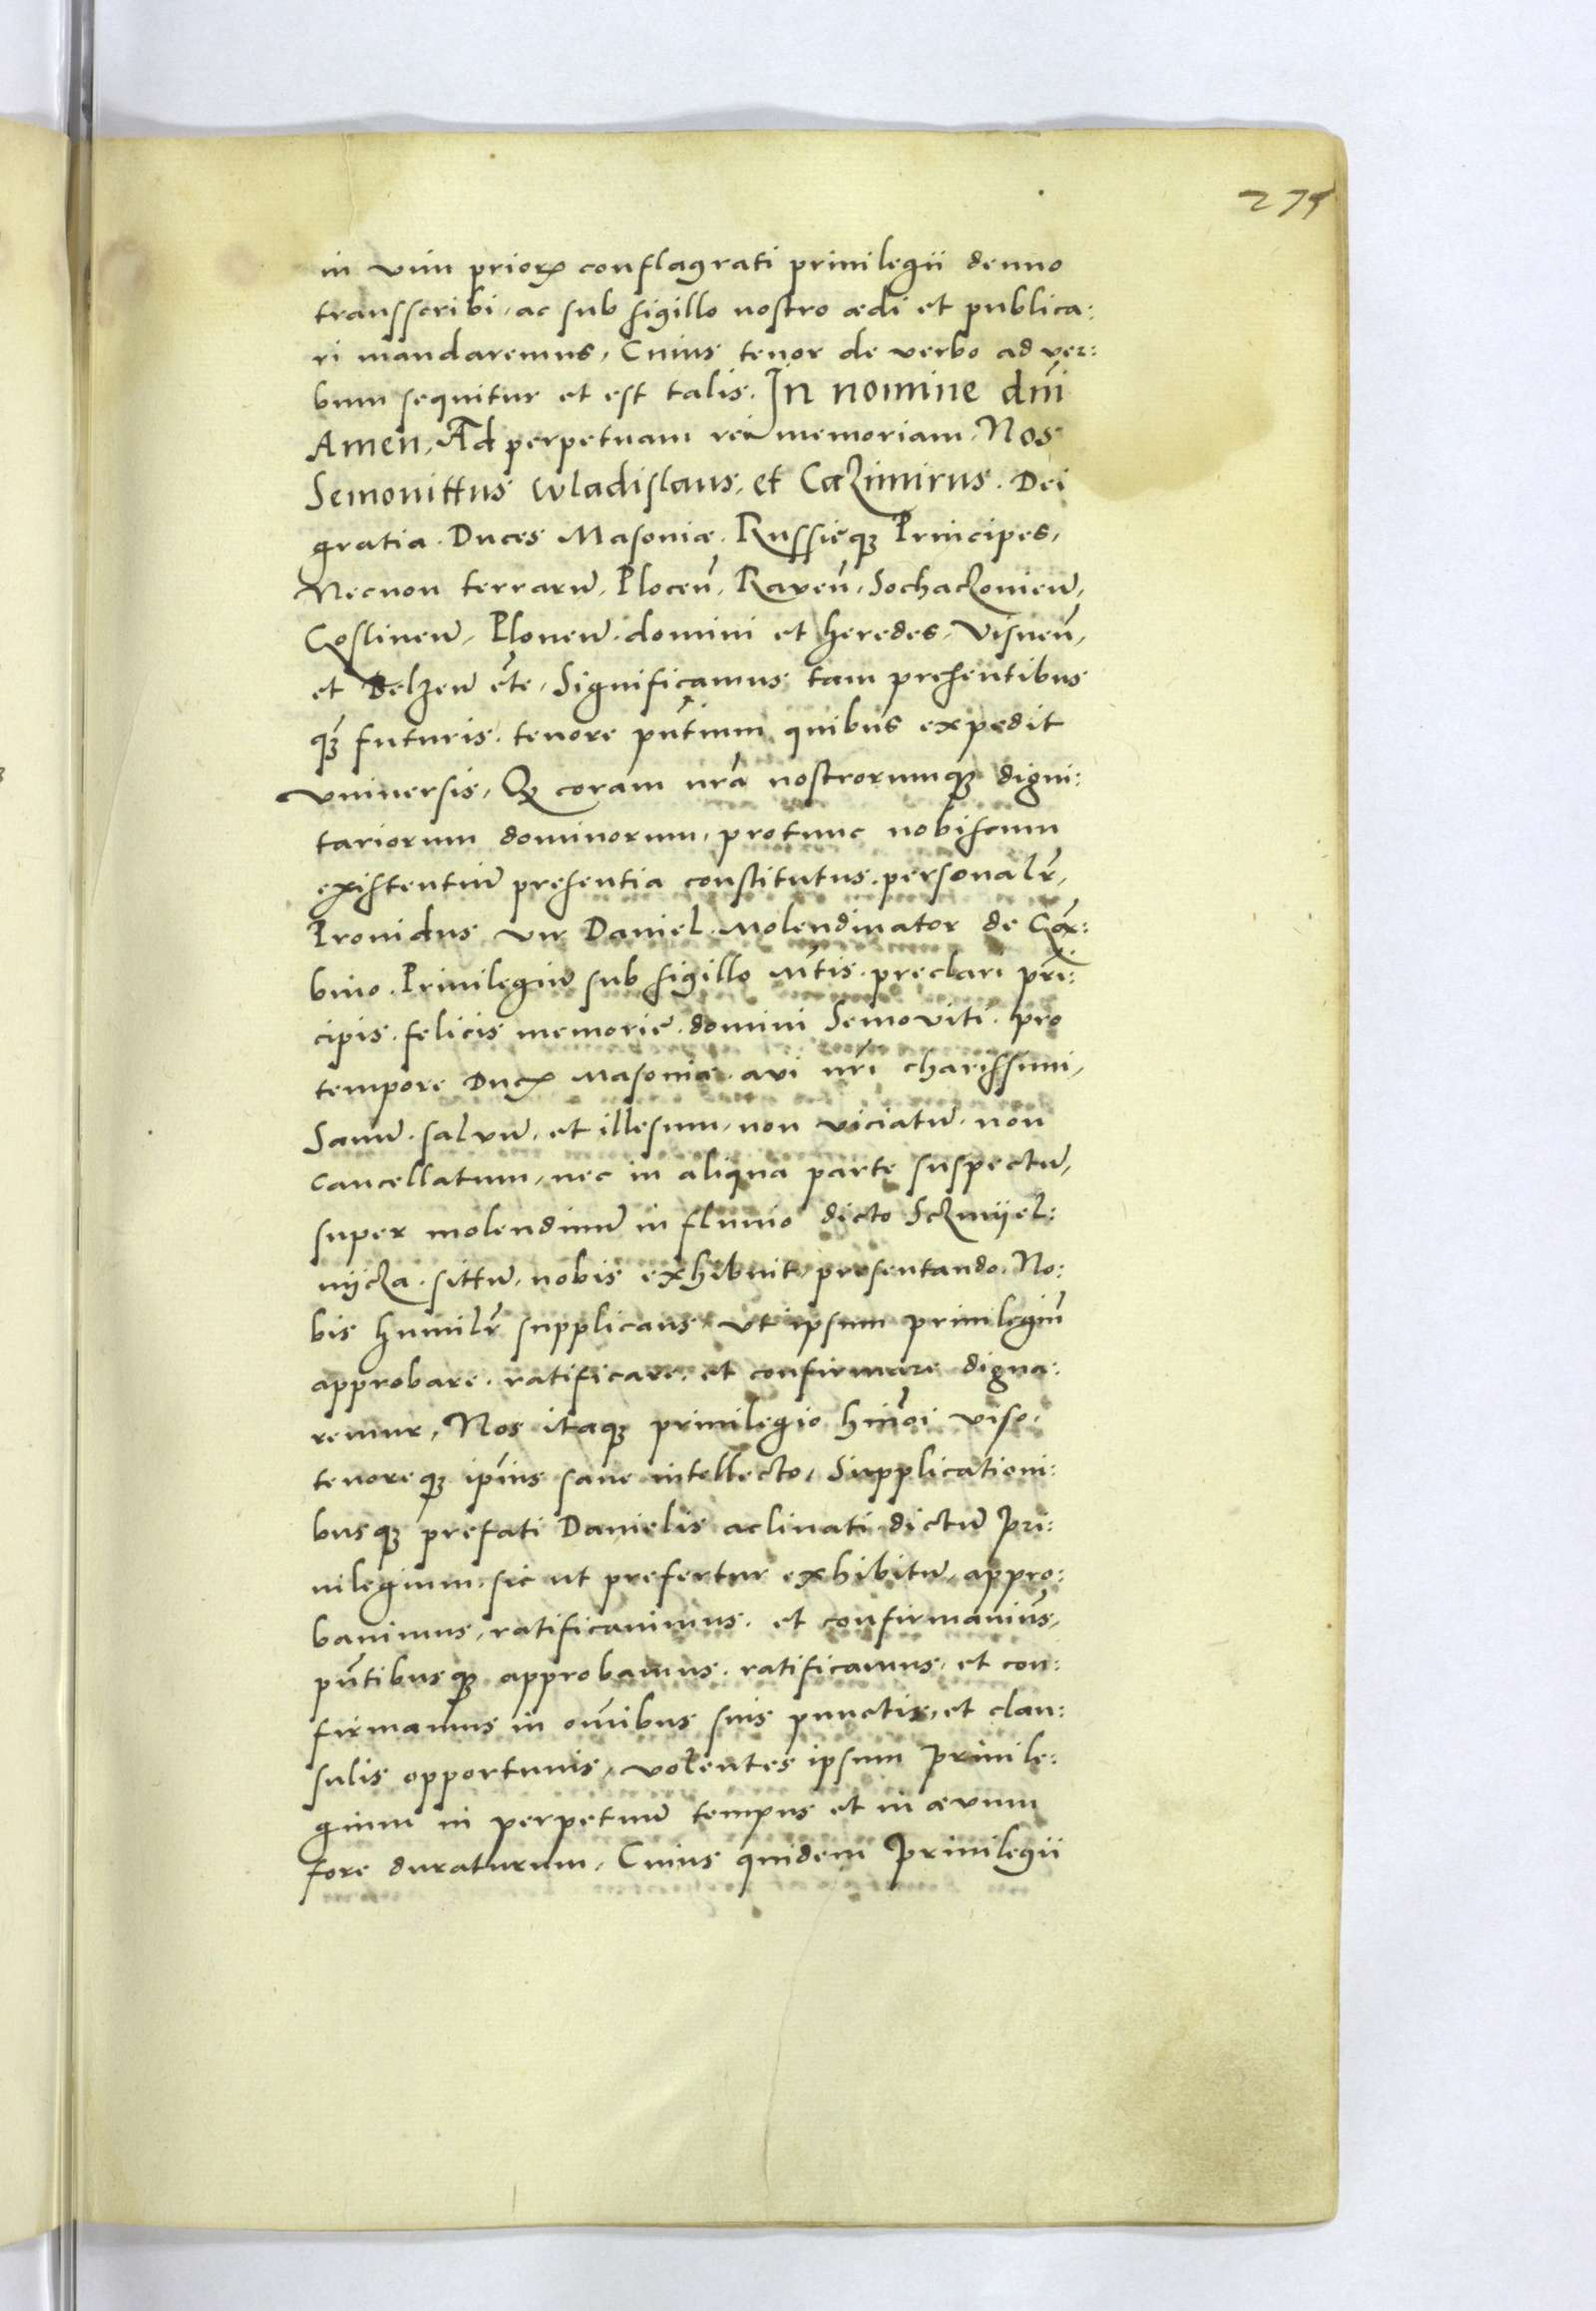 275
in vim priorꝭ conflagrati privilegii denuo
transscribi, ac sub sigillo nostro ædi et publica:
ri mandaremus, Cuius tenor de verbo ad ver:
bum sequitur et est talis. In nomine dñi
Amen, Ad perpetuam rei memoriam, Nos
Semovittus Wladislaus, et Cazimirus. Dei
gratia. Duces Masoviæ. Russieqꝫ Principes,
Necnon terrarū, Plocen̄, Raven̄, Sochaczovien̄,
Gostinen̄, Plonen̄. domini et heredes, Visnen̄,
et Belzen̄ etc̄, Significamus tam presentibus
qꝫ futuris. tenore pn̄tium quibus expedit
vniversis, Qꝫ coram nrā nostrorumqꝫ digni:
tariorum dominorum, protunc nobiscum
existentiū presentia constitutus. personalr̄,
Providus vir Daniel. Molendinator de
bino. Privilegiū sub sigillo preclari prī:
cipis. felicis memorie. domini Semoviti. pro
tempore Ducꝭ Masoviæ. avi nr̄i charissimi,
Sanū. salvū, et illesum, non viciatū. non
cancellatum, nec in aliqua parte suspectū,
super molendinū in fluvio dicto Sczmijel:
nijcza. sittū, nobis exhibuit, presentando. No:
bis humilr̄ supplicans, vt ipsum privilegiū
approbare. ratificare, et confirmare digna:
remur, Nos itaqꝫ privilegio hm̄oi viso,
tenoreqꝫ ipīus sane intellecto, Supplicationi:
busqꝫ prefati Danielis aclinati dictū Pri:
vilegium, sic ut prefertur exhibitū, appro:
bavimus, ratificavimus. et confirmavim̄us,
pn̄tibusqꝫ approbamus. ratificamus, et con:
firmamus in om̄ibus suis punctis, et clau:
sulis opportunis, volentes ipsum Privile:
gium in perpetuū tempus et in ævum
fore duraturum, Cuius quidem Privilegii